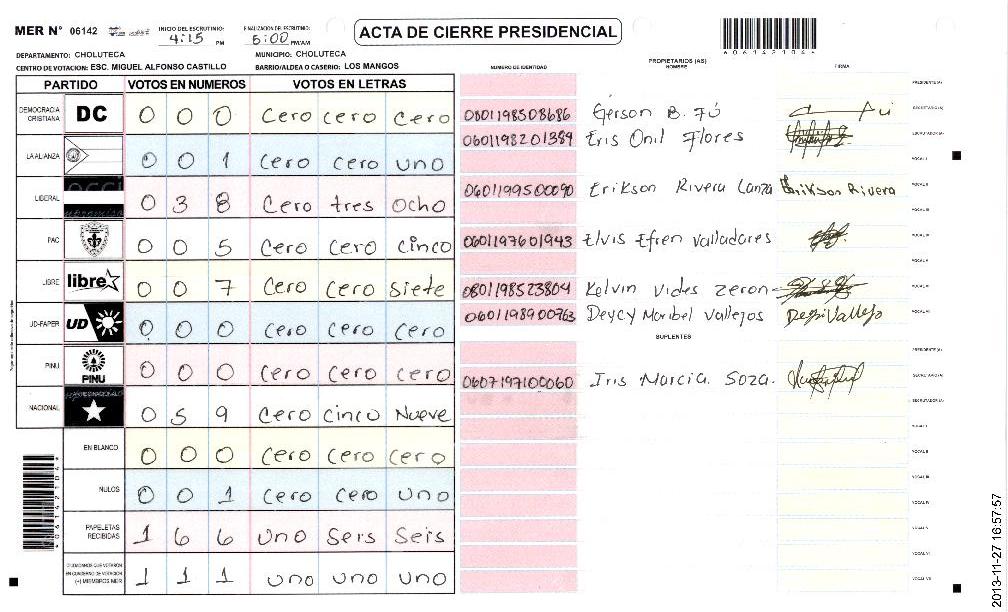 MER N° 06142
INICIO DEL ESCRUTINIO: 4:15 PM
FINALIZACION DEL ESCRUTINIO: 5:00 PM/AM
ACTA DE CIERRE PRESIDENCIAL
DEPARTAMENTO: CHOLUTECA MUNICIPIO: CHOLUTECA
CENTRO DE VOTACION: ESC. MIGUEL ALFONSO CASTILLO BARRIO/ALDEA O CASERIO: LOS MANGOS
PARTIDO VOTOS EN NUMEROS VOTOS EN LETRAS
DEMOCRACIA CRISTIANA DC 0 0 0 Cero cero cero
LA ALIANZA 0 0 1 Cero cero uno
LIBERAL 0 3 8 Cero tres ocho
PAC 0 0 5 Cero Cero cinco
LIBRE libre 0 0 7 Cero Cero siete
UD-FAPER UD 0 0 0 Cero Cero Cero
PINU PINU 0 0 0 Cero Cero cero
NACIONAL 0 5 9 Cero Cinco Nueve
EN BLANCO 0 0 0 Cero Cero Cero
NULOS 0 0 1 Cero Cero Uno
PAPELETAS RECIBIDAS 1 6 6 Uno Seis Seis
CIUDADANOS QUE VOTARON EN CUADERNO DE VOTACION (+) MIEMBROS MER 1 1 1 uno uno uno
NUMERO DE IDENTIDAD PROPIETARIOS (AS) NOMBRE FIRMA
PRESIDENTE(A)
0801198508686 Gerson B. Fú SECRETARIO(A)
0601198201389 Eris Onil Flores ESCRUTADOR(A)
VOCAL I
0601199500090 Erikson Rivera Lanza Erikson Rivera VOCAL II
VOCAL III
0601197601943 Elvis Efren Valladares VOCAL IV
VOCAL V
0801198523804 Kelvin Vides Zeron VOCAL VI
0601198900763 Deycy Maribel Vallejos VOCAL VII
SUPLENTES
PRESIDENTE(A)
0607197100060 Iris Marcia. Soza. SECRETARIO(A)
ESCRUTADOR(A)
VOCAL I
VOCAL II
VOCAL III
VOCAL IV
VOCAL V
VOCAL VI
VOCAL VII
2013-11-27 16:57:57